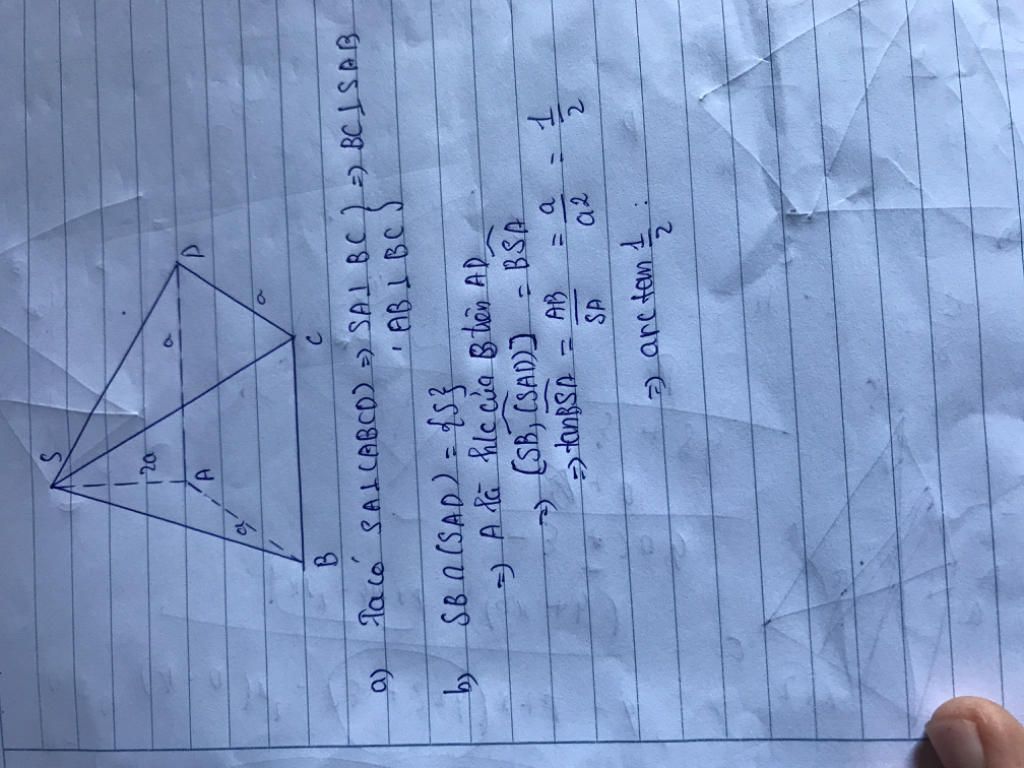 S
2a
a
A
D
a
a
B
C
a) Ta có SA⊥(ABCD) => SA⊥BC } => BC⊥SAB
, AB⊥BC }
b) SB∩(SAD) = {S}
=> A là h/c của B trên AD
=> [SB, (SAD)] = BSA
=> tanBSA = AB/SA = a/a2 = 1/2
=> arctan 1/2.